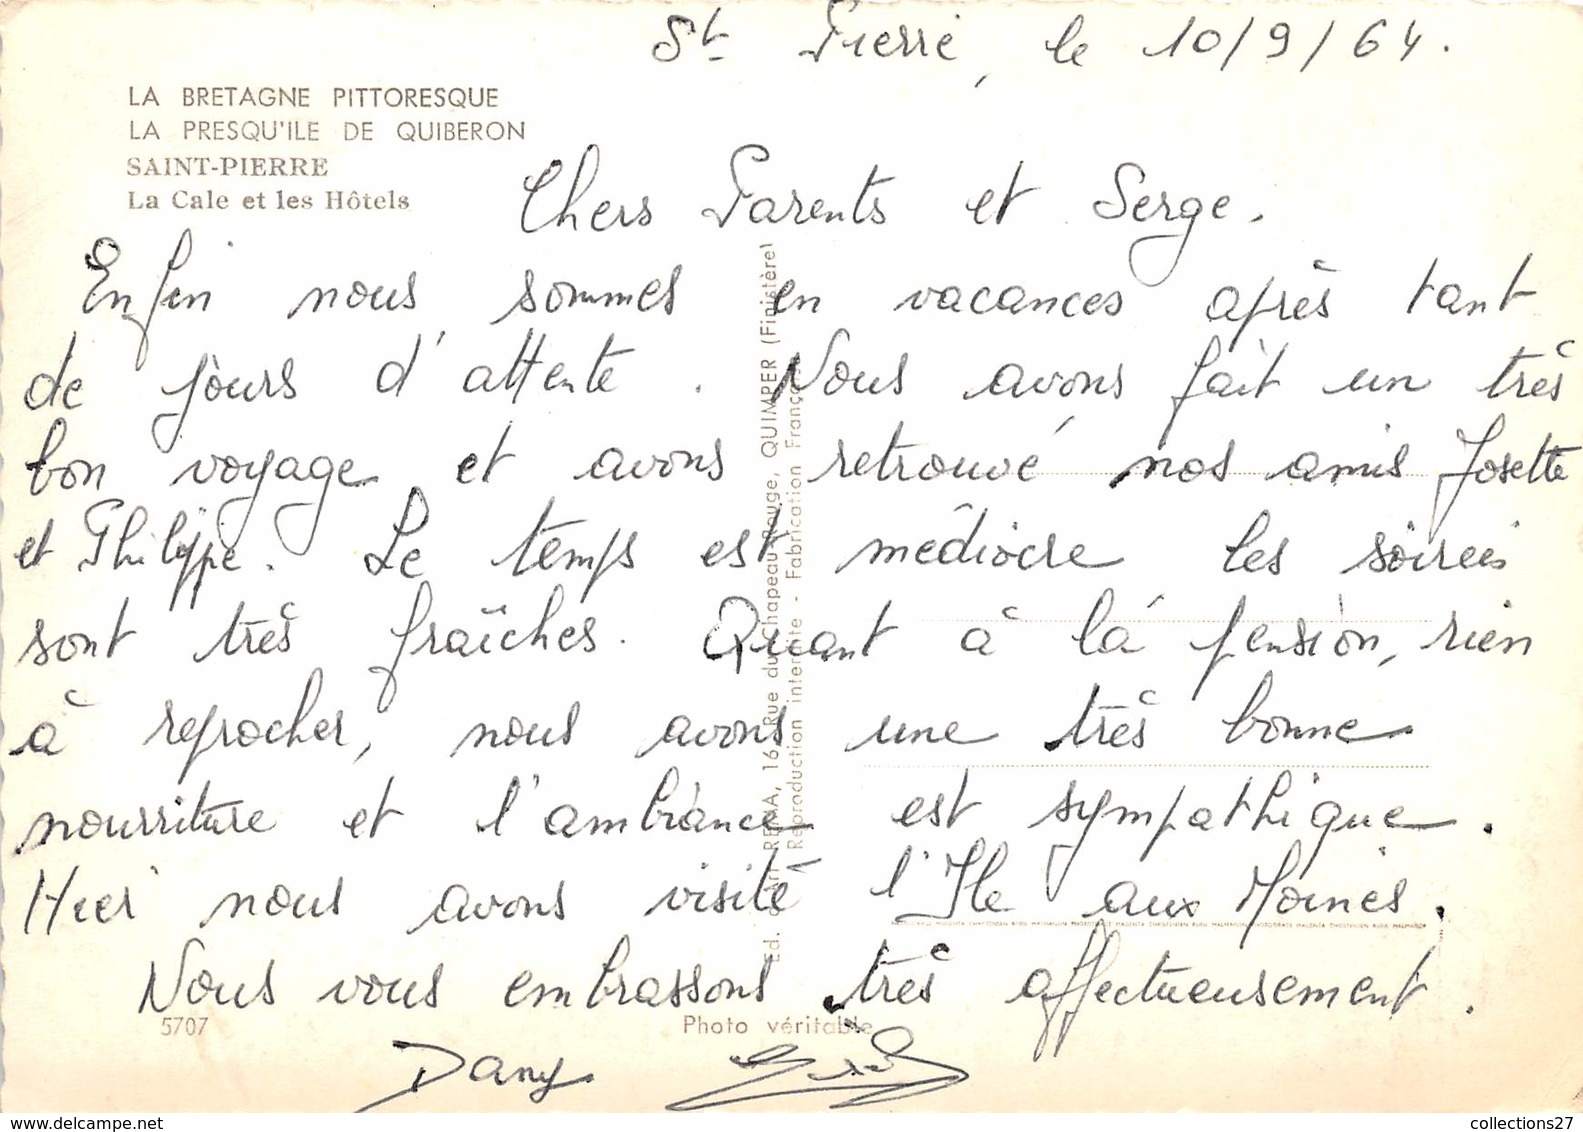 St Pierre, le 10/9/64.
LA BRETAGNE PITTORESQUE
LA PRESQU'ILE DE QUIBERON
SAINT-PIERRE
La Cale et les Hôtels
Chers Parents et Serge.
Enfin nous sommes en vacances après tant
de jours d'attente. Nous avons fait un très
bon voyage et avons retrouvé nos amis Josette
et Philippe. Le temps est médiocre les soirées
sont très fraîches. Quant à la pension, rien
à reprocher, nous avons une très bonne
nourriture et l'ambiance est sympathique.
Hier nous avons visité l'Ile aux Moines.
Nous vous embrassons très affectueusement.
5707
Photo véritable
Dany
Ed. REMA, 16, Rue du Chapeau-Rouge, QUIMPER (Finistère)
Reproduction interdite - Fabrication Française
collections27